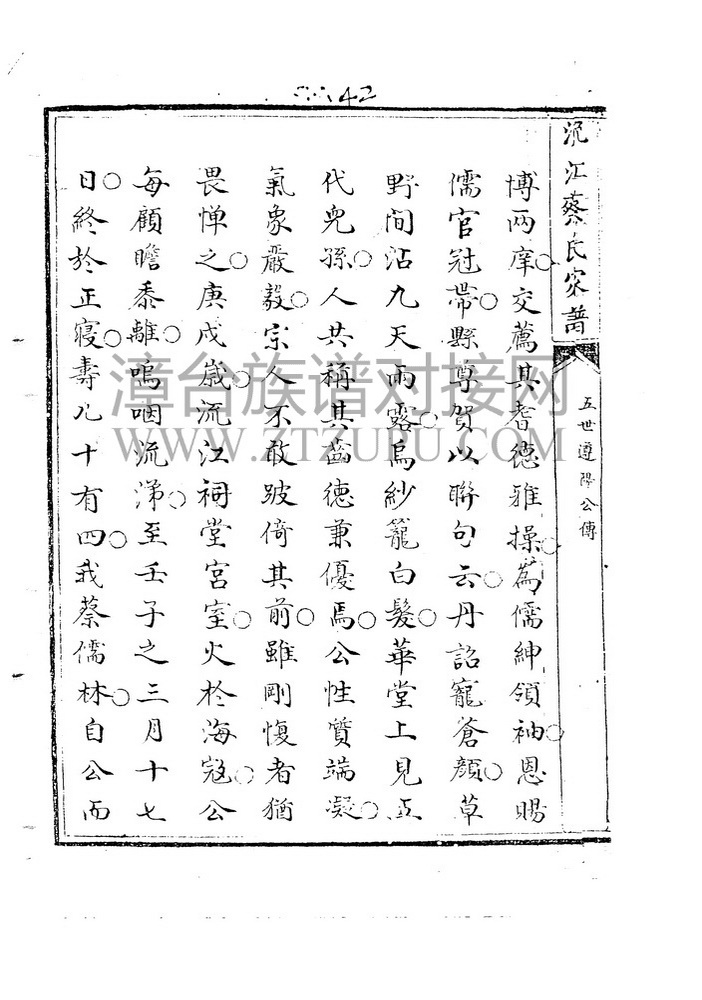 42
流江蔡氏家譜
五世遵陽公傳
博兩庠○交薦其耆德雅操○為儒紳領袖○恩賜
儒官冠帶○縣尊賀以聯句云○丹詔寵蒼顏○草
野間沾九天雨露○烏紗籠白髮○華堂上見五
代兒孫○人共稱其齒德兼優焉○公性質端凝○
氣象嚴毅○宗人不敢跛倚其前○雖剛愎者猶
畏憚之○庚戌歲○流江祠堂宮室○火於海寇○公
每顧瞻黍離○嗚咽流涕○至壬子之三月十七
日○終於正寢○壽八十有四○我蔡儒林○自公而
漳台族谱对接网
WWW.ZTZUPU.COM